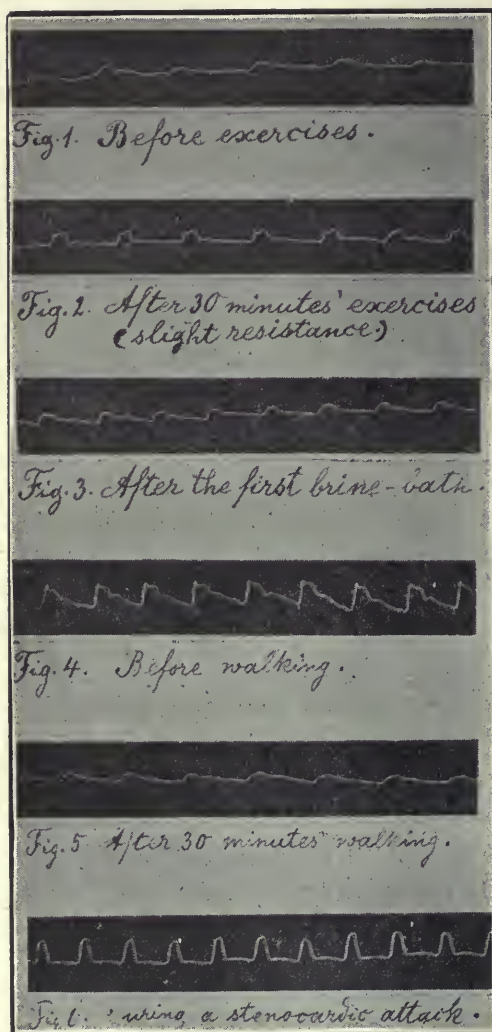 Fig. 1. Before exercises.
Fig. 2. After 30 minutes' exercises
(slight resistance)
Fig. 3. After the first brine-bath.
Fig. 4. Before walking.
Fig. 5 After 30 minutes' walking.
Fig. uring a stenocardic attack.